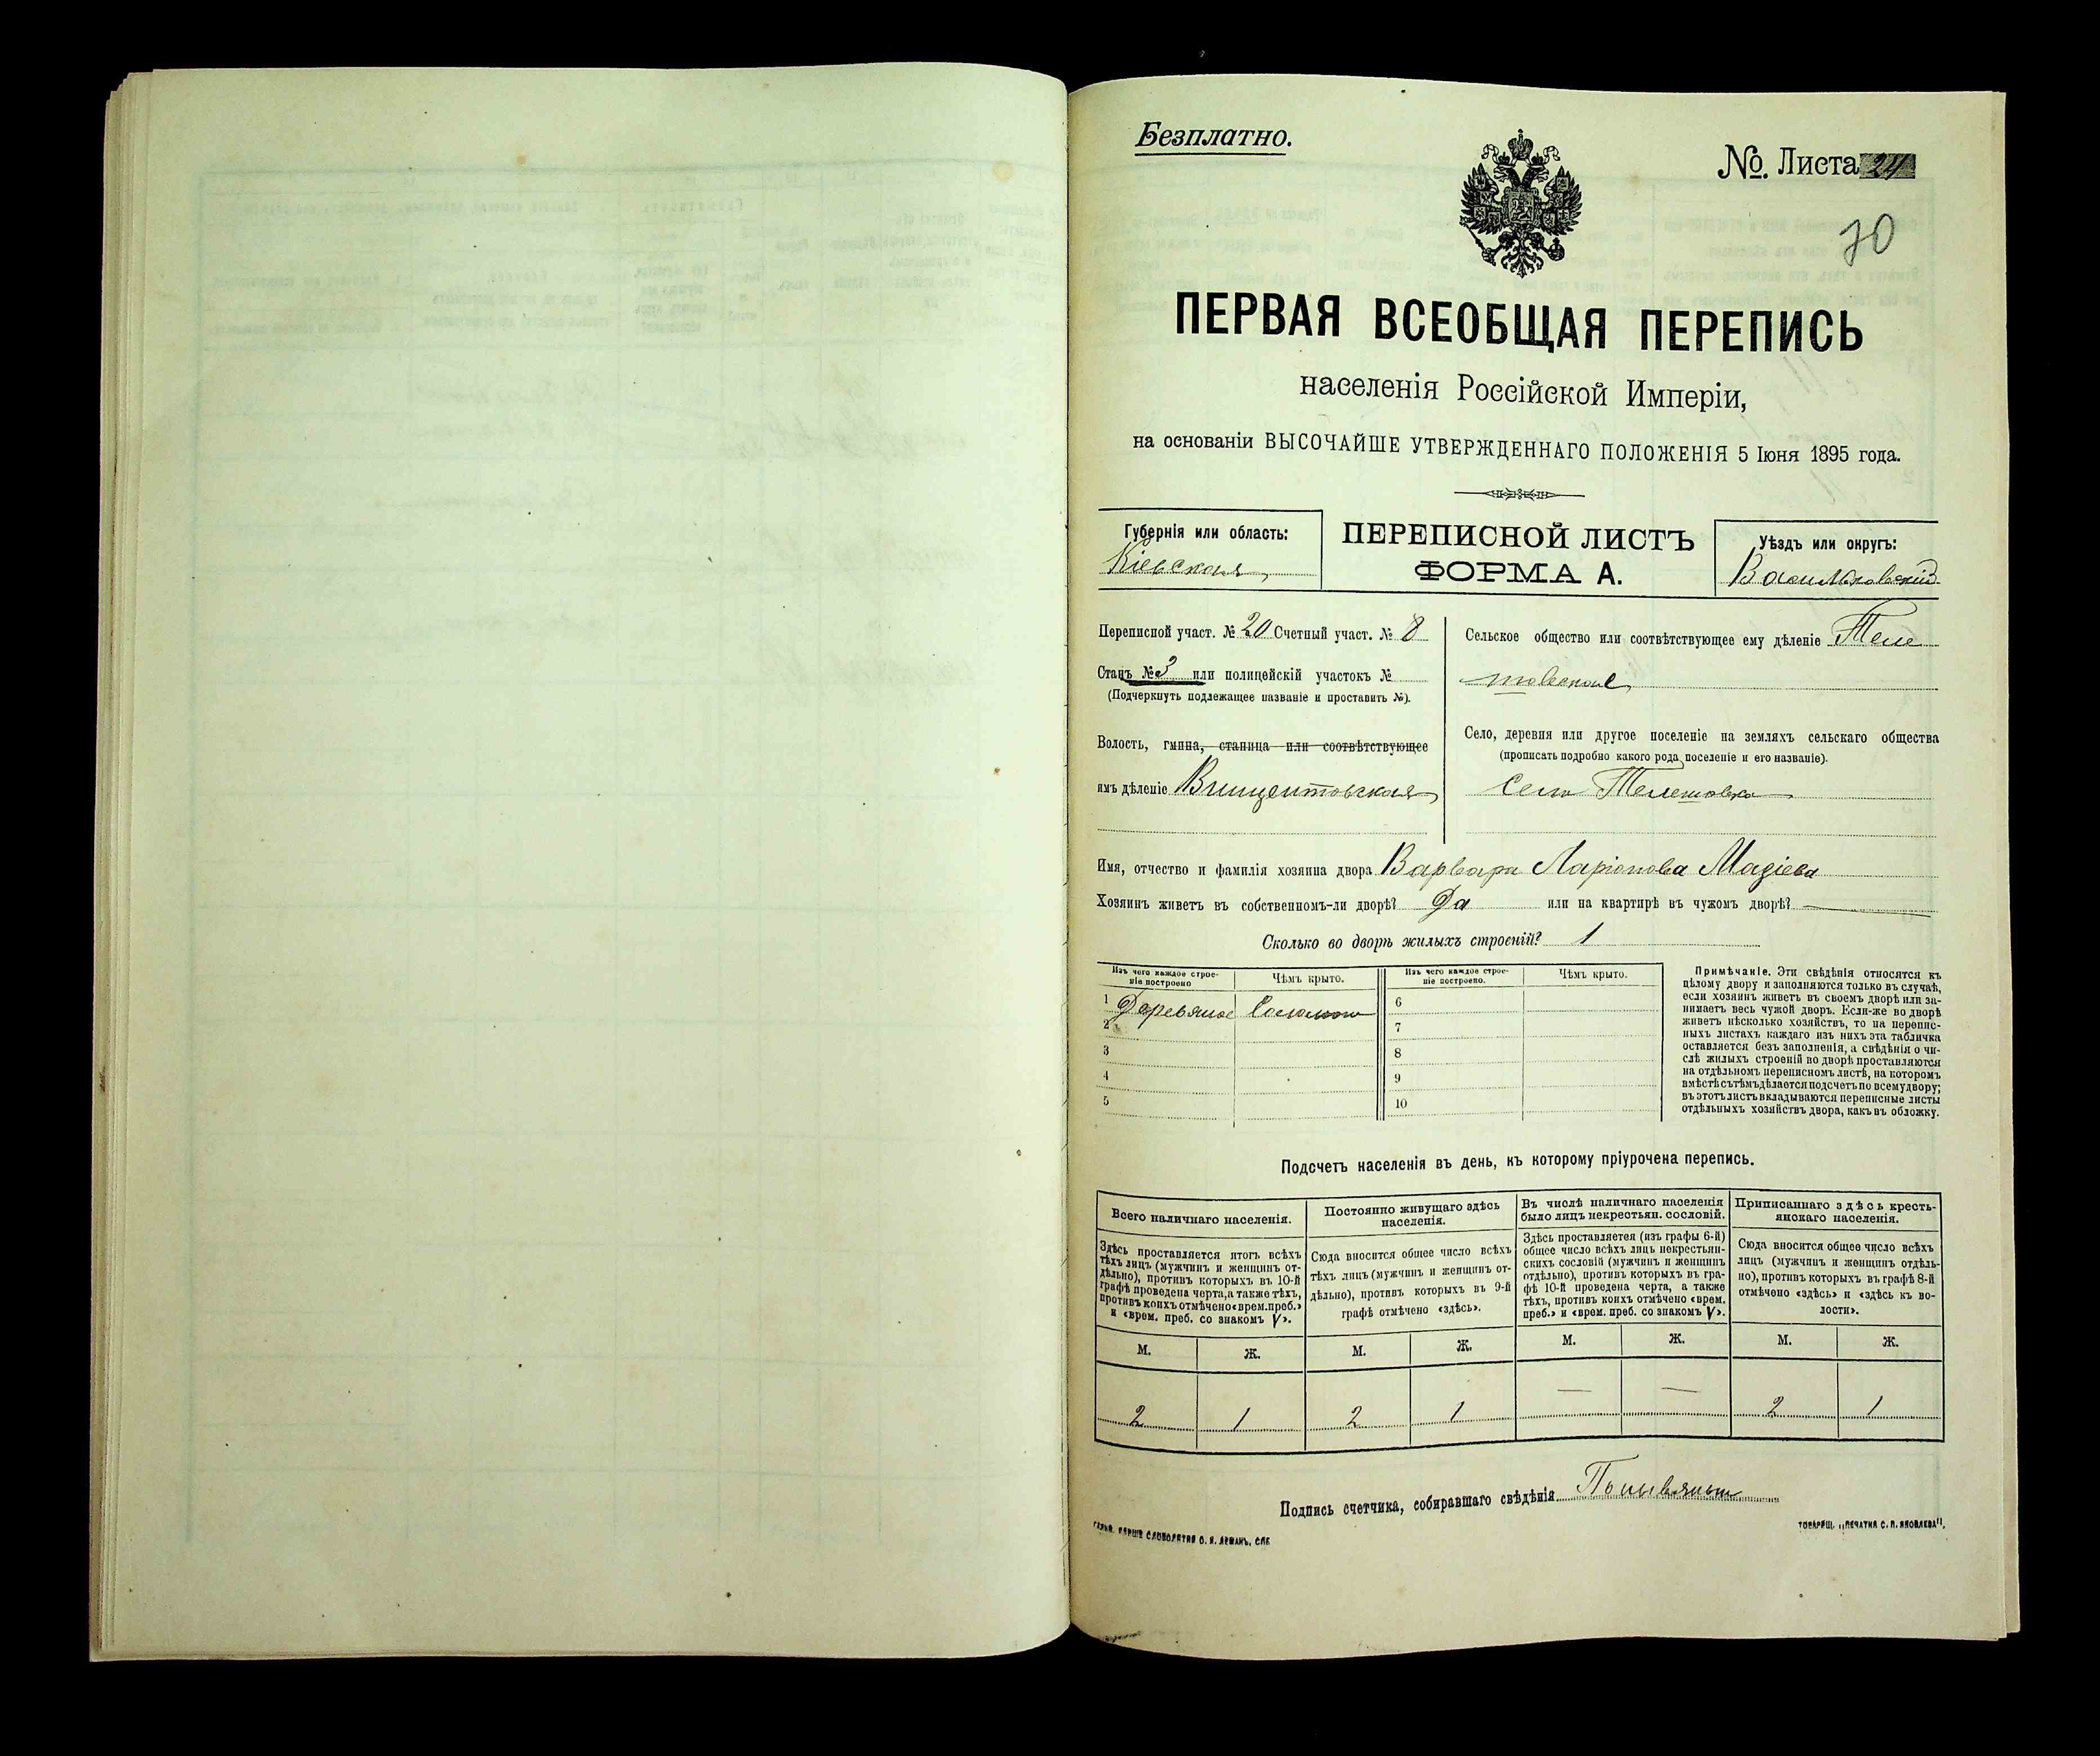 Безплатно.
№. Листа 24
70
ПЕРВАЯ ВСЕОБЩАЯ ПЕРЕПИСЬ
населенія Россійской Имперіи,
на основаніи ВЫСОЧАЙШЕ УТВЕРЖДЕННАГО ПОЛОЖЕНІЯ 5 Іюня 1895 года.
Губернія или область:
Кіевская
ПЕРЕПИСНОЙ ЛИСТЪ
ФОРМА А.
Уѣздъ или округъ:
Васильковскій
Переписной участ. № 20 Счетный участ. № 8
Станъ № 3 или полицейскій участокъ №
(Подчеркнуть подлежащее названіе и проставить №).
Волость, гмина, станица или соотвѣтствующее
имъ дѣленіе Винцентовская
Сельское общество или соотвѣтствующее ему дѣленіе Теле
шовское
Село, деревня или другое поселеніе на земляхъ сельскаго общества
(прописать подробно какого рода поселеніе и его названіе).
Село Телешовка
Имя, отчество и фамилія хозяина двора Варвара Ларіонова Мазіева
Хозяинъ живетъ въ собственномъ-ли дворѣ? Да или на квартирѣ въ чужомъ дворѣ?
Сколько во дворѣ жилыхъ строеній? 1
Изъ чего каждое строе-
ніе построено
Чѣмъ крыто.
Изъ чего каждое строе-
ніе построено.
Чѣмъ крыто.
1 Деревяное Соломою
2
3
4
5
6
7
8
9
10
Примѣчаніе. Эти свѣдѣнія относятся къ
цѣлому двору и заполняются только въ случаѣ,
если хозяинъ живетъ въ своемъ дворѣ или за-
нимаетъ весь чужой дворъ. Если-же во дворѣ
живетъ нѣсколько хозяйствъ, то на перепис-
ныхъ листахъ каждаго изъ нихъ эта табличка
оставляется безъ заполненія, а свѣдѣнія о чи-
слѣ жилыхъ строеній во дворѣ проставляются
на отдѣльномъ переписномъ листѣ, на которомъ
вмѣстѣ съ тѣмъ дѣлается подсчетъ по всему двору;
въ этотъ листъ вкладываются переписные листы
отдѣльныхъ хозяйствъ двора, какъ въ обложку.
Подсчетъ населенія въ день, къ которому пріурочена перепись.
Всего наличнаго населенія.
Здѣсь проставляется итогъ всѣхъ
тѣхъ лицъ (мужчинъ и женщинъ от-
дѣльно), противъ которыхъ въ 10-й
графѣ проведена черта, а также тѣхъ,
противъ коихъ отмѣчено «врем. преб.»
и «врем. преб. со знакомъ V».
Постоянно живущаго здѣсь
населенія.
Сюда вносится общее число всѣхъ
тѣхъ лицъ (мужчинъ и женщинъ от-
дѣльно), противъ которыхъ въ 9-й
графѣ отмѣчено «здѣсь».
Въ числѣ наличнаго населенія
было лицъ некрестьян. сословій.
Здѣсь проставляется (изъ графы 6-й)
общее число всѣхъ лицъ некрестьян-
скихъ сословій (мужчинъ и женщинъ
отдѣльно), противъ которыхъ въ гра-
фѣ 10-й проведена черта, а также
тѣхъ, противъ коихъ отмѣчено «врем.
преб.» и «врем. преб. со знакомъ V».
Приписаннаго здѣсь кресть-
янскаго населенія.
Сюда вносится общее число всѣхъ
лицъ (мужчинъ и женщинъ отдѣль-
но), противъ которыхъ въ графѣ 8-й
отмѣчено «здѣсь» и «здѣсь къ во-
лости».
М. Ж. М. Ж. М. Ж. М. Ж.
2 1 2 1 — — 2 1
Подпись счетчика, собиравшаго свѣдѣнія
ТОВАРИЩ. „ПЕЧАТНЯ С. П. ЯКОВЛЕВА".